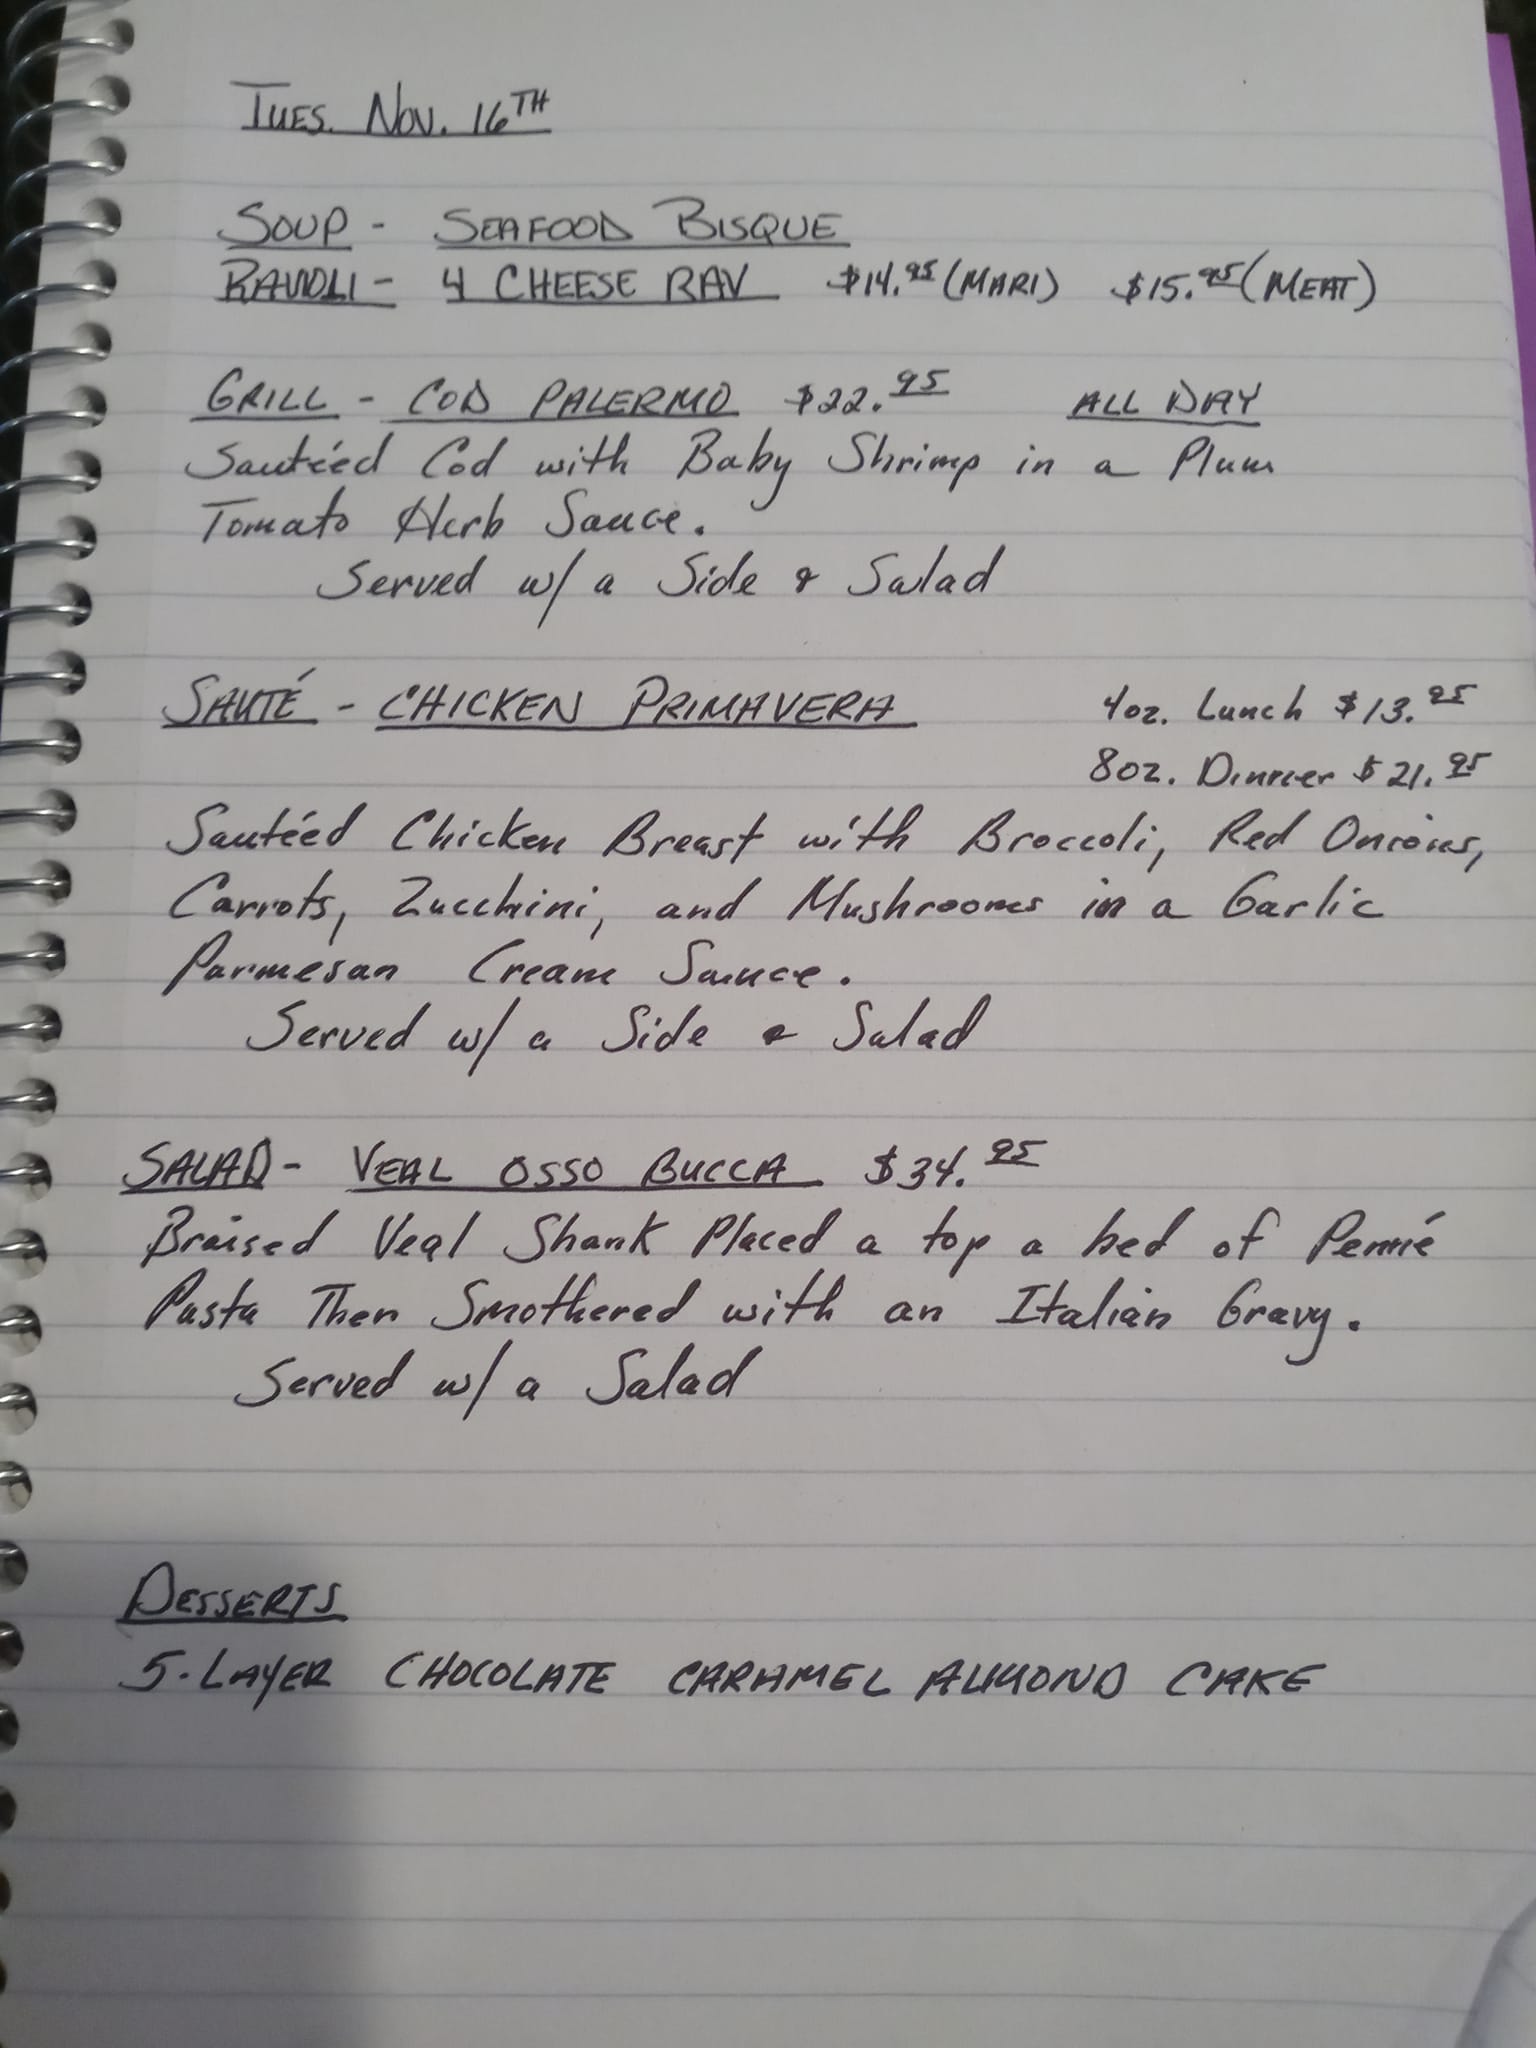 TUES. NOV. 16TH
SOUP - SEAFOOD BISQUE
RAVIOLI - 4 CHEESE RAV $14.95 (MARI) $15.95 (MEAT)
GRILL - COD PALERMO $22.95 ALL DAY
Sautéed Cod with Baby Shrimp in a Plum
Tomato Herb Sauce.
Served w/ a Side & Salad
SAUTÉ - CHICKEN PRIMAVERA 4oz. Lunch $13.95
8oz. Dinner $21.95
Sautéed Chicken Breast with Broccoli, Red Onions,
Carrots, Zucchini, and Mushrooms in a Garlic
Parmesan Cream Sauce.
Served w/ a Side & Salad
SALAD - VEAL OSSO BUCCA $34.95
Braised Veal Shank Placed a top a bed of Penné
Pasta Then Smothered with an Italian Gravy.
Served w/ a Salad
DESSERTS
5-LAYER CHOCOLATE CARAMEL ALMOND CAKE